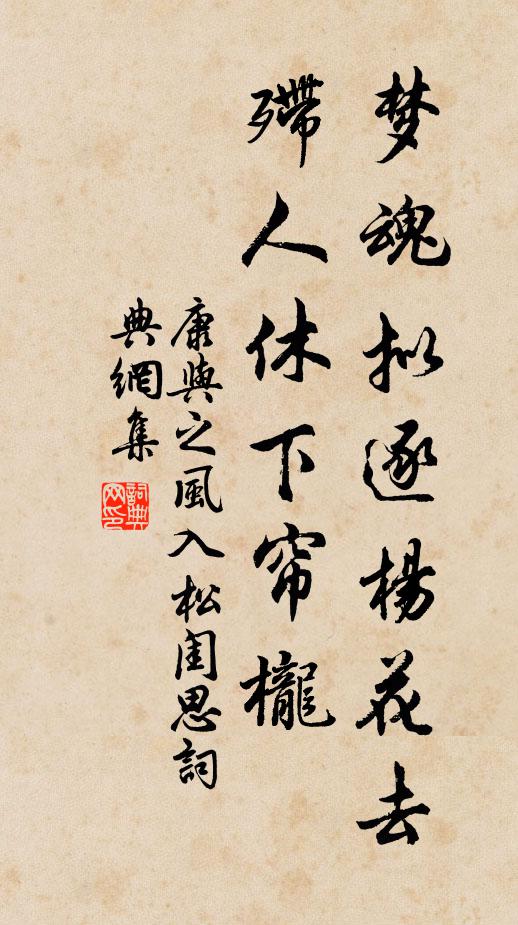 梦魂拟逐楊花去
殢人休下帘櫳
康與之風入松閨思詞
典網集
詞典
网印